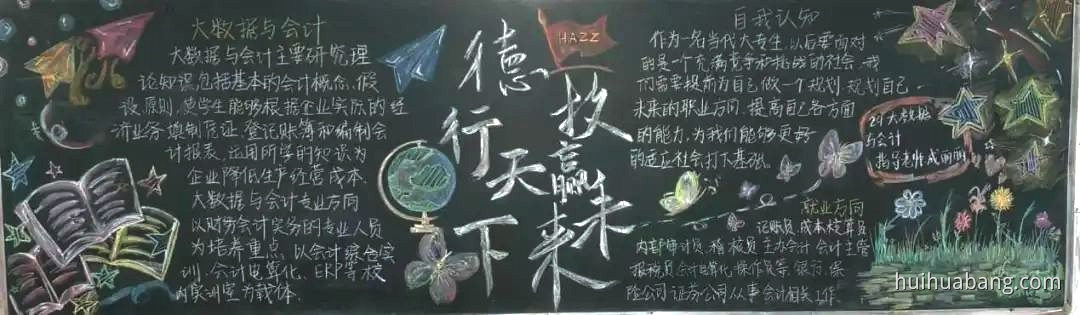 大数据与会计
大数据与会计主要研究理
论知识,包括基本的会计概念、假
设、原则,使学生能够根据企业实际的经
济业务填制凭证、登记账簿和编制会
计报表,运用所学的知识为
企业降低生产经营成本.
大数据与会计专业方向
以财务会计实务的专业人员
为培养重点,以会计综合实
训、会计电算化、ERP等校
内实训室为载体.
德行天下
技赢未来
HAZZ
自我认知
作为一名当代大专生,以后要面对
的是一个充满竞争和挑战的社会,我
们需要提前为自己做一个规划,规划自己
未来的职业方向,提高自己各方面
的能力,为我们能够更好
的适应社会打下基础.
21大数据
与会计
指导老师:成丽丽
就业方向
记账员,成本核算员
内部审计员,稽核员,主办会计,会计主管
报税员,会计电算化,操作员等,银行,保
险公司,证券公司从事会计相关工作.
huihuabang.com